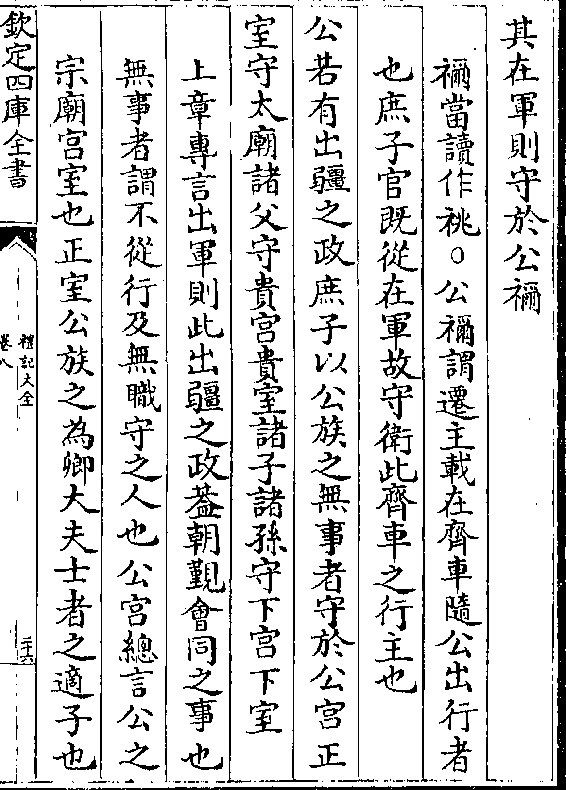 其在軍則守於公禰
禰當讀作祧○公禰謂遷主載在齊車隨公出行者
也庶子官既從在軍故守衛此齊車之行主也
公若有出疆之政庶子以公族之無事者守於公宮正
室守太廟諸父守貴宮貴室諸子諸孫守下宮下室
上章專言出軍則此出疆之政葢朝覲會同之事也
無事者謂不從行及無職守之人也公宮總言公之
宗廟宮室也正室公族之為卿大夫士者之適子也
欽定四庫全書
禮記大全
卷八
二十六